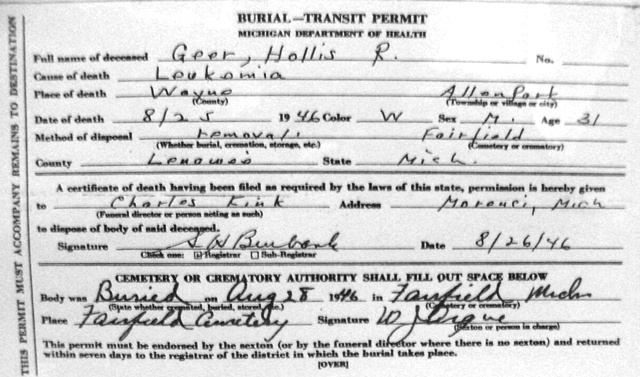 BURIAL—TRANSIT PERMIT
MICHIGAN DEPARTMENT OF HEALTH
Full name of deceased Geer, Hollis R. No.
Cause of death Leukemia
Place of death Wayne Allen Park
(County) (Township or village or city)
Date of death 8/25 1946 Color W Sex M. Age 31
Method of disposal removal. Fairfield
(Whether burial, cremation, storage, etc.) (Cemetery or crematory)
County Lenawee State Mich.
A certificate of death having been filed as required by the laws of this state, permission is hereby given
to Charles Fink Address Morenci, Mich
(Funeral director or person acting as such)
to dispose of body of said deceased.
Signature S H Burbank Date 8/26/46
Check one: Registrar Sub-Registrar
CEMETERY OR CREMATORY AUTHORITY SHALL FILL OUT SPACE BELOW
Body was Buried on Aug 28 1946 in Fairfield Mich
(State whether cremated, buried, stored, etc.) (Cemetery or crematory)
Place Fairfield Cemetery Signature W J
(Sexton or person in charge)
This permit must be endorsed by the sexton (or by the funeral director where there is no sexton) and returned
within seven days to the registrar of the district in which the burial takes place.
[OVER]
THIS PERMIT MUST ACCOMPANY REMAINS TO DESTINATION